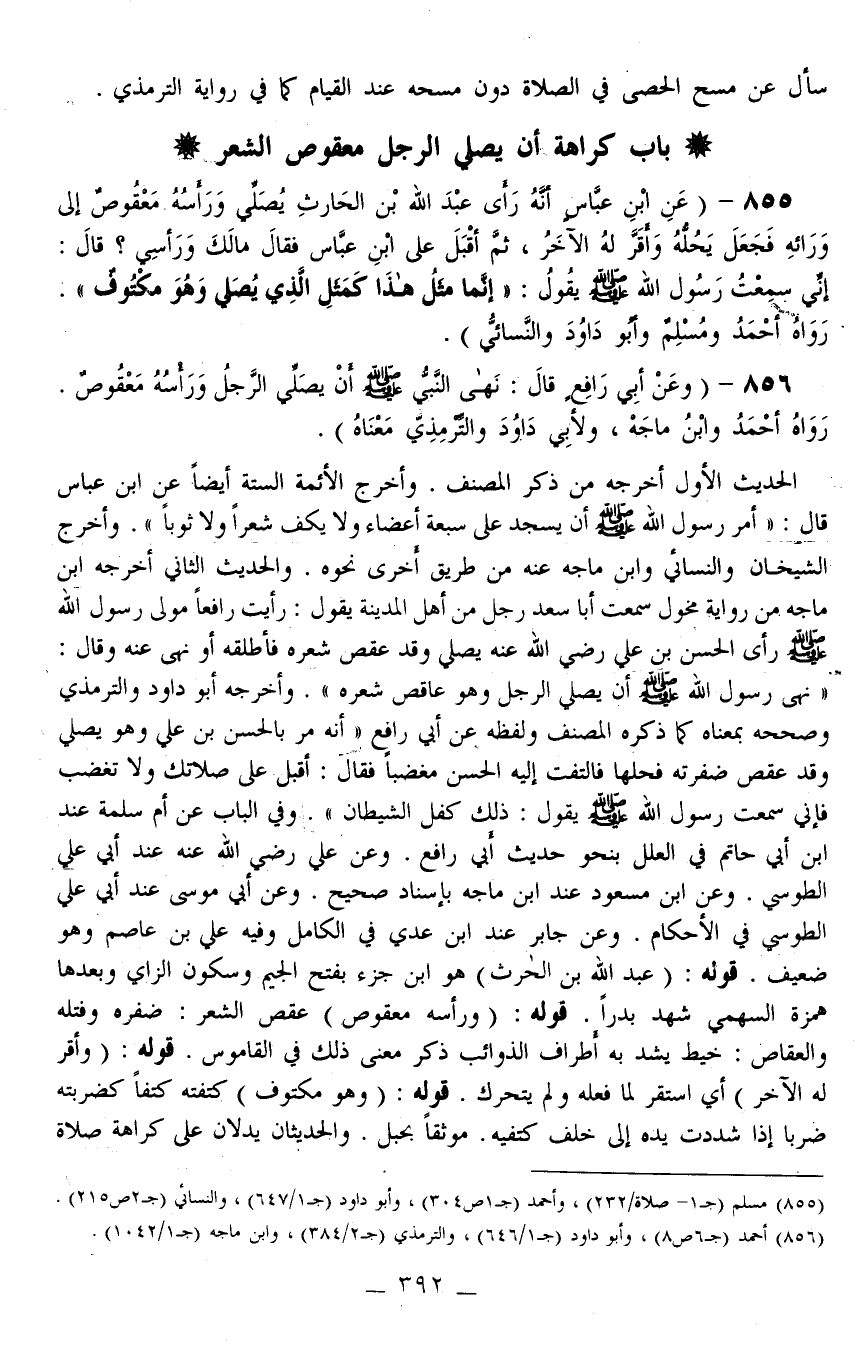 سأل عن مسح الحصى في الصلاة دون مسحه عند القيام كما في رواية الترمذي .
✹ باب كراهة أن يصلي الرجل معقوص الشعر ✹
٨٥٥ – ( عَنِ ابْنِ عبَّاسٍ أنَّهُ رَأَى عبْدَ الله بْن الحَارثِ يُصَلِّي وَرَأْسُهُ مَعْقُوصٌ إلى
وَرَائهِ فَجَعَلَ يَحُلُّهُ وَأقَرَّ لهُ الآخَرُ ، ثمَّ أقْبَلَ على ابْنِ عبَّاس فقالَ مالَكَ وَرَأسِي ؟ قالَ :
إنِّي سمِعْتُ رَسُول الله ﷺ يقُولُ : « إنَّما مثَلُ هٰذَا كَمَثَلِ الَّذِي يُصَلي وَهُوَ مكْتُوفٌ » .
رَوَاهُ أحْمَدُ ومُسْلِمٌ وأبُو دَاوُدَ والنَّسائيُّ ) .
٨٥٦ – ( وعَنْ أبِي رَافِعٍ قالَ : نَهىٰ النَّبيُّ ﷺ أنْ يصَلِّي الرَّجلُ وَرَأْسُهُ مَعْقُوصٌ .
رَوَاهُ أحْمَدُ وابْنُ ماجَهْ ، ولأبِي دَاوُدَ والتِّرْمذِيّ مَعْنَاهُ ) .
الحديث الأول أخرجه من ذكر المصنف . وأخرج الأئمة الستة أيضاً عن ابن عباس
قال : « أمر رسول الله ﷺ أن يسجد على سبعة أعضاء ولا يكف شعراً ولا ثوباً » . وأخرج
الشيخان والنسائي وابن ماجه عنه من طريق أخرى نحوه . والحديث الثاني أخرجه ابن
ماجه من رواية مخول سمعت أبا سعد رجل من أهل المدينة يقول : رأيت رافعاً مولى رسول الله
ﷺ رأى الحسن بن علي رضي الله عنه يصلي وقد عقص شعره فأطلقه أو نهى عنه وقال :
« نهى رسول الله ﷺ أن يصلي الرجل وهو عاقص شعره » . وأخرجه أبو داود والترمذي
وصححه بمعناه كما ذكره المصنف ولفظه عن أبي رافع « أنه مر بالحسن بن علي وهو يصلي
وقد عقص ضفرته فحلها فالتفت إليه الحسن مغضباً فقال : أقبل على صلاتك ولا تغضب
فإني سمعت رسول الله ﷺ يقول : ذلك كفل الشيطان » . وفي الباب عن أم سلمة عند
ابن أبي حاتم في العلل بنحو حديث أبي رافع . وعن علي رضي الله عنه عند أبي علي
الطوسي . وعن ابن مسعود عند ابن ماجه بإسناد صحيح . وعن أبي موسى عند أبي علي
الطوسي في الأحكام . وعن جابر عند ابن عدي في الكامل وفيه علي بن عاصم وهو
ضعيف . قوله : ( عبد الله بن الحٰرث ) هو ابن جزء بفتح الجيم وسكون الزاي وبعدها
همزة السهمي شهد بدراً . قوله : ( ورأسه معقوص ) عقص الشعر : ضفره وفتله
والعقاص : خيط يشد به أطراف الذوائب ذكر معنى ذلك في القاموس . قوله : ( وأقر
له الآخر ) أي استقر لما فعله ولم يتحرك . قوله : ( وهو مكتوف ) كتفته كتفاً كضربته
ضربا إذا شددت يده إلى خلف كتفيه. موثقاً بحبل . والحديثان يدلان على كراهة صلاة
(٨٥٥) مسلم (جـ١– صلاة/٢٣٢) ، وأحمد (جـ١ص٣٠٤) ، وأبو داود (جـ٦٤٧/١) ، والنسائي (جـ٢ص٢١٥) .
(٨٥٦) أحمد (جـ٦ص٨) ، وأبو داود (جـ٦٤٦/١) ، والترمذي (جـ٣٨٤/٢) ، وابن ماجه (جـ١٠٤٢/١) .
ــ ٣٩٢ ــ